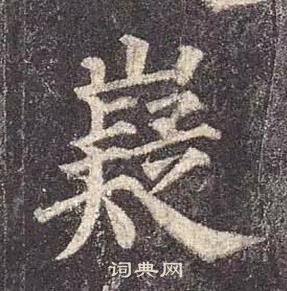 嶷
词典网